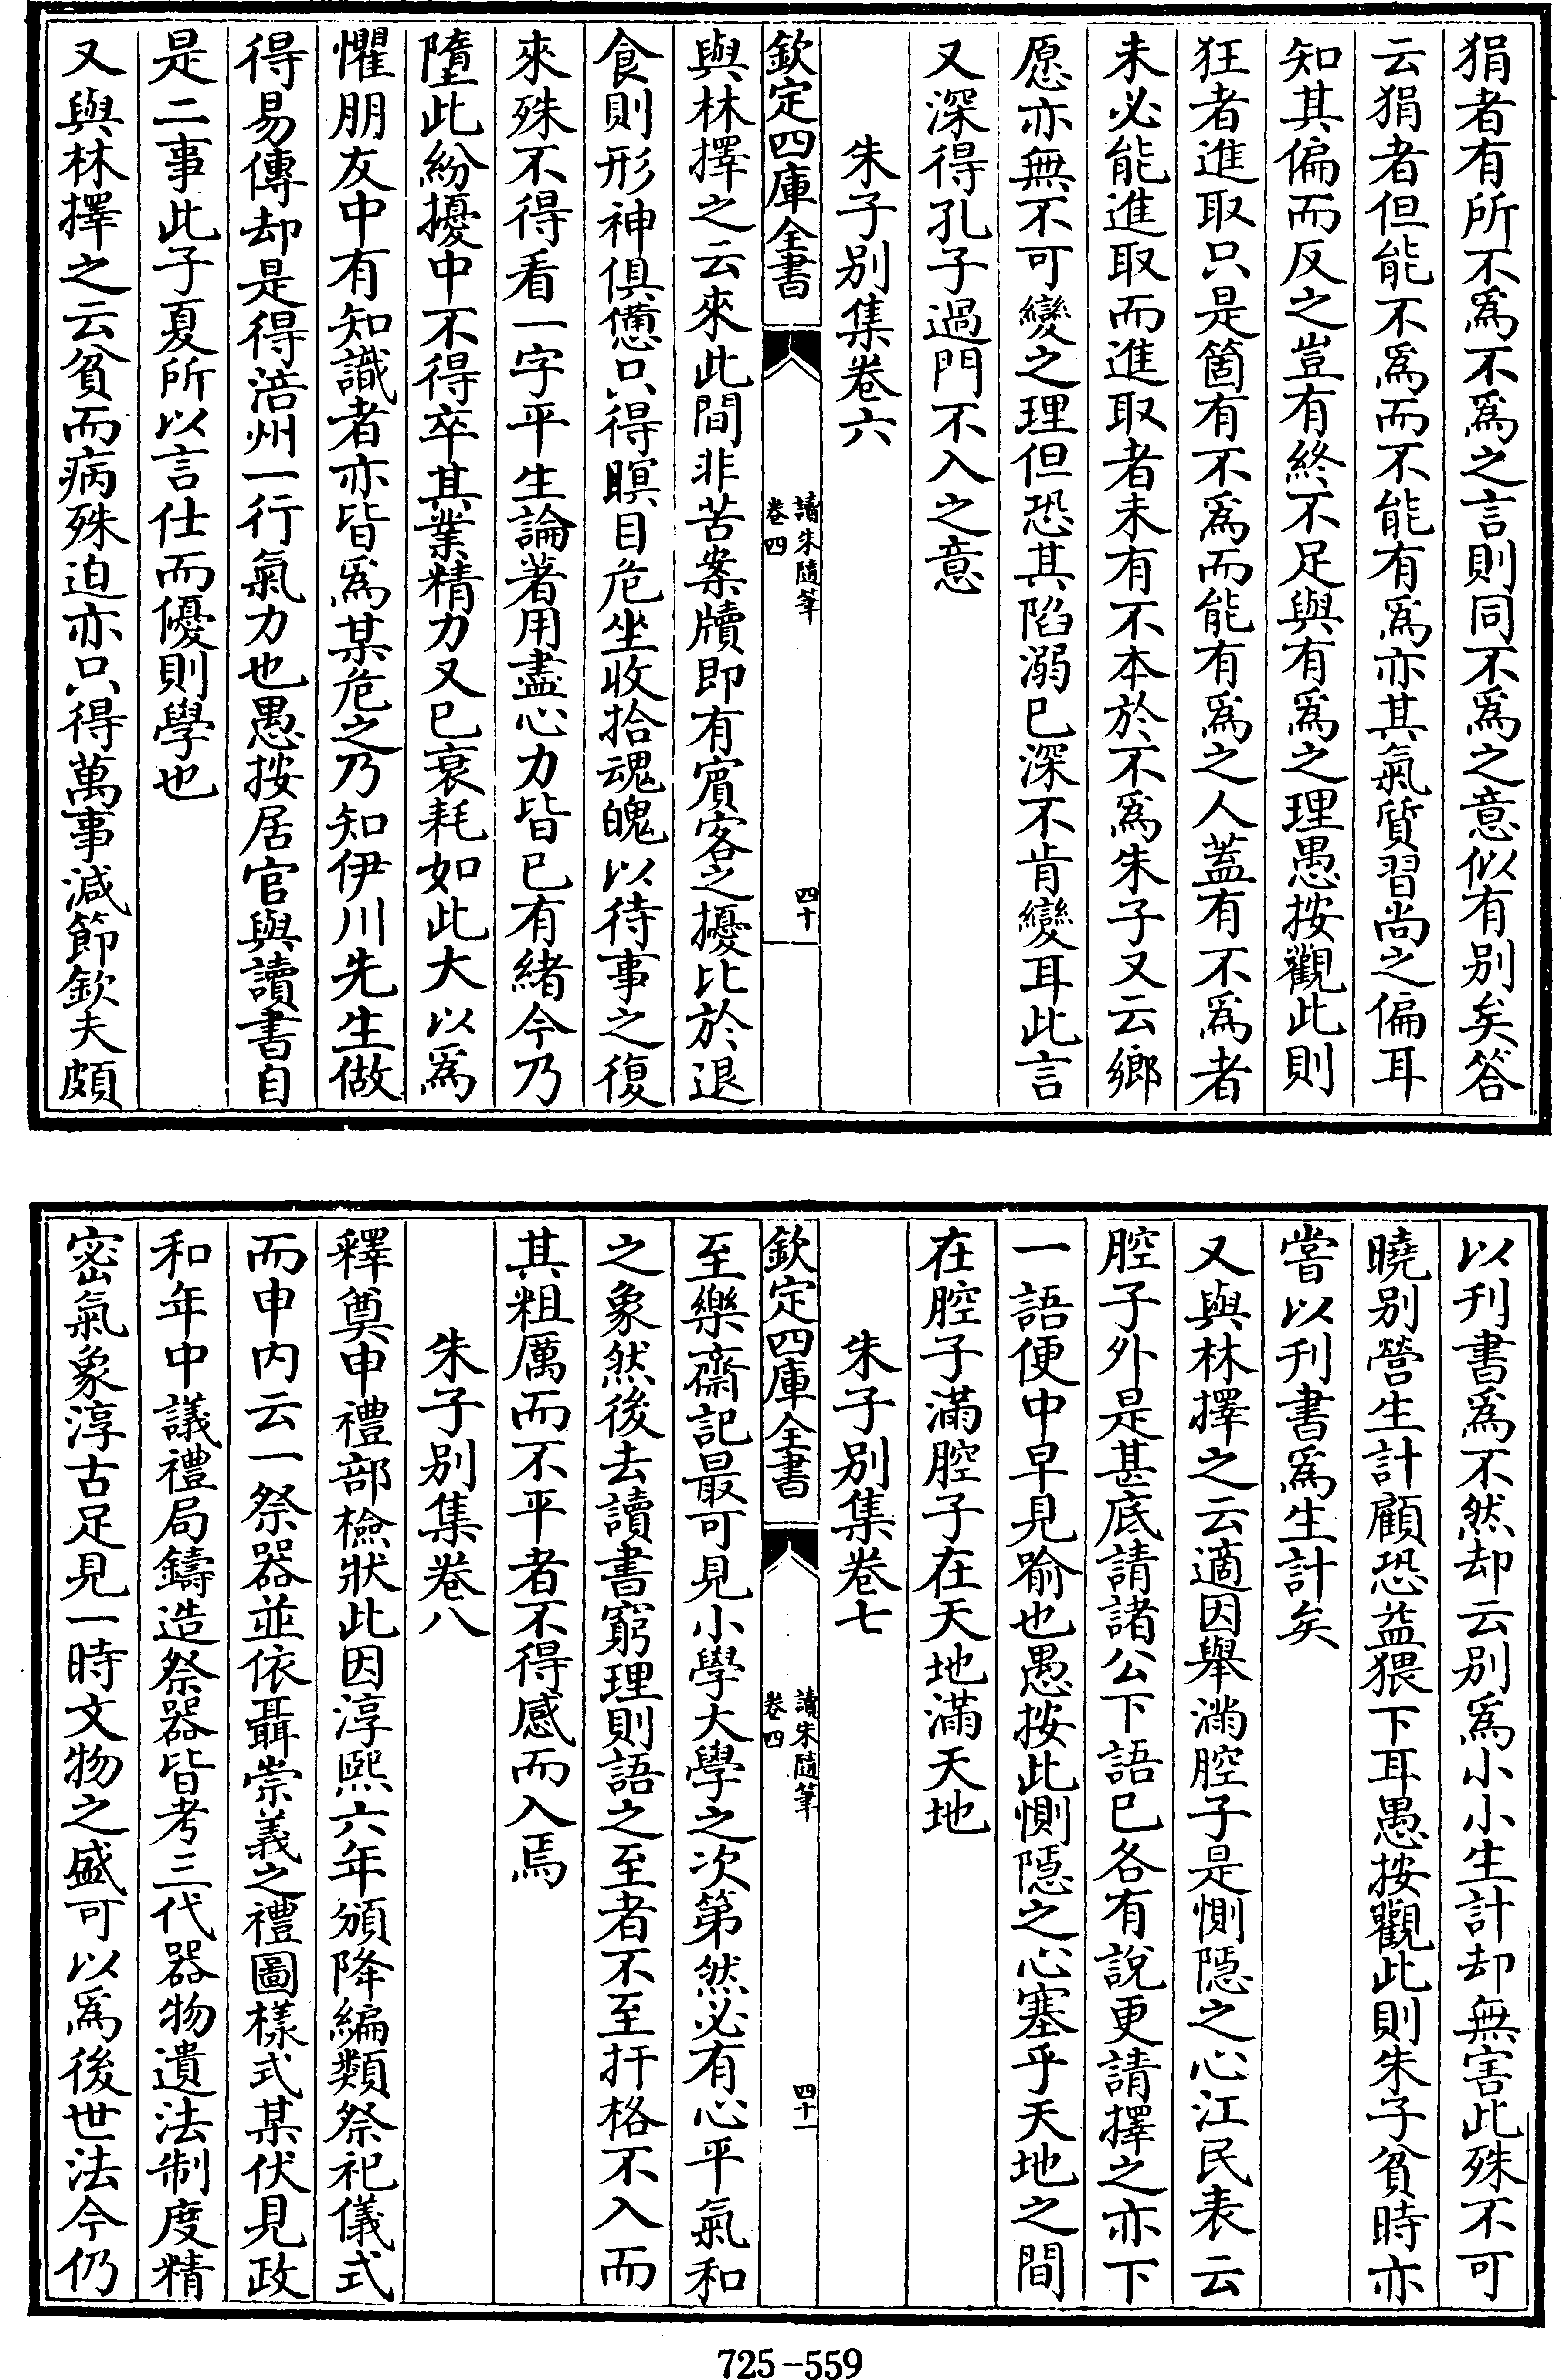 狷者有所不爲不爲之言則同不爲之意似有别矣答
云狷者但能不爲而不能有爲亦其氣質習尚之偏耳
知其偏而反之豈有終不足與有爲之理愚按觀此則
狂者進取只是箇有不爲而能有爲之人蓋有不爲者
未必能進取而進取者未有不本於不爲朱子又云鄉
愿亦無不可變之理但恐其陷溺已深不肯變耳此言
又深得孔子過門不入之意
朱子别集卷六
欽定四庫全書
讀朱隨筆
卷四
四十
與林擇之云來此間非苦案牘即有賓客之擾比於退
食則形神俱憊只得瞑目危坐收拾魂魄以待事之復
來殊不得看一字平生論著用盡心力皆已有緒今乃
墮此紛擾中不得卒其業精力又已衰耗如此大以爲
懼朋友中有知識者亦皆爲某危之乃知伊川先生做
得易傳却是得涪州一行氣力也愚按居官與讀書自
是二事此子夏所以言仕而優則學也
又與林擇之云貧而病殊迫亦只得萬事減節欽夫頗
以刊書爲不然却云别爲小小生計却無害此殊不可
曉别營生計顧恐益猥下耳愚按觀此則朱子貧時亦
嘗以刊書爲生計矣
又與林擇之云適因舉滿腔子是惻隱之心江民表云
腔子外是甚底請諸公下語已各有說更請擇之亦下
一語便中早見喻也愚按此惻隱之心塞乎天地之間
在腔子滿腔子在天地滿天地
朱子别集卷七
欽定四庫全書
讀朱隨筆
卷四
四十一
至樂齋記最可見小學大學之次第然必有心平氣和
之象然後去讀書窮理則語之至者不至扞格不入而
其粗厲而不平者不得感而入焉
朱子别集卷八
釋奠申禮部檢狀此因淳熙六年頒降編類祭祀儀式
而申内云一祭器並依聶崇義之禮圖樣式某伏見政
和年中議禮局鑄造祭器皆考三代器物遺法制度精
密氣象淳古足見一時文物之盛可以爲後世法今仍
725-559